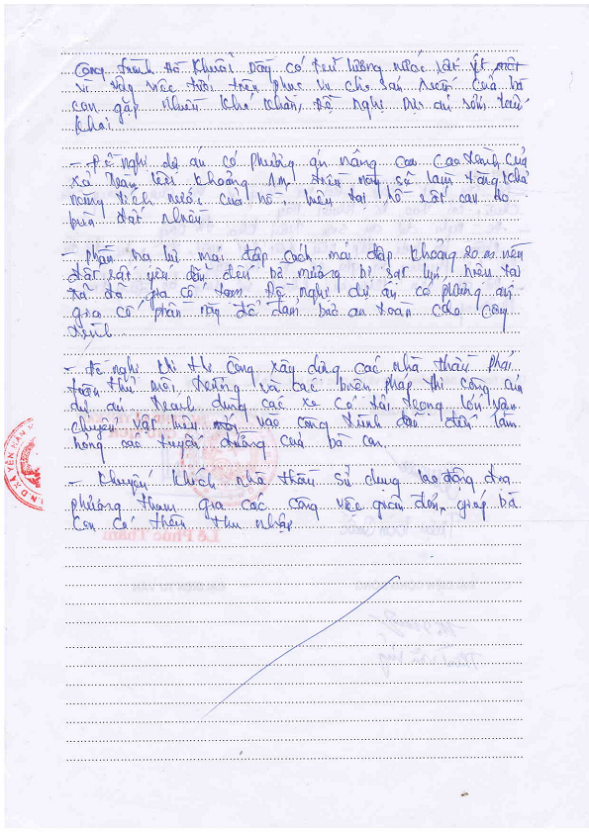 Công trình Hồ Khuổi Dầy có trữ lượng nước rất ít
vì vậy việc tưới tiêu phục vụ cho sản xuất của bà
con gặp nhiều khó khăn, Đề nghị Dự án sớm triển
khai.
- Đề nghị dự án có phương án nâng cao cao trình của
xả tràn lên khoảng 1m, điều này sẽ làm tăng khả
năng tích nước của hồ, hiện tại hồ rất cao do
biên đất nhiều.
- Phần hạ lưu mái đập cách mái đập khoảng 20 m nền
đất rất yếu dẫn đến bờ mương bị sạt lụt, hiện tại
xã đã gia cố tạm. Đề nghị dự án có phương án
gia cố phần này để đảm bảo an toàn cho công
trình.
- Đề nghị khi thi công xây dựng các nhà thầu phải
tuân thủ môi trường và các biện pháp thi công
dự án tránh dùng các xe có tải trọng lớn vận
chuyển vật liệu vào công trình dẫn đến làm
hỏng các tuyến đường của bà con.
- Khuyến khích nhà thầu sử dụng lao động địa
phương tham gia các công việc giản đơn, giúp bà
con có thêm thu nhập
Lê Phúc Thăm